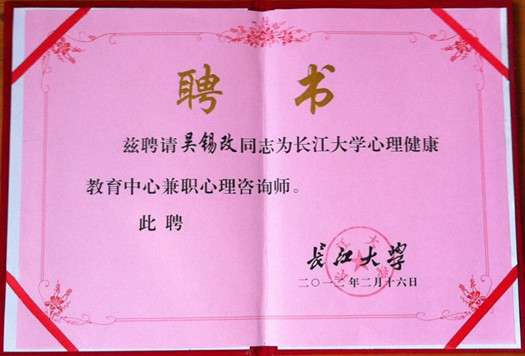 聘书
兹聘请吴锡改同志为长江大学心理健康
教育中心兼职心理咨询师。
此聘
长江大学
二〇一二年二月十六日